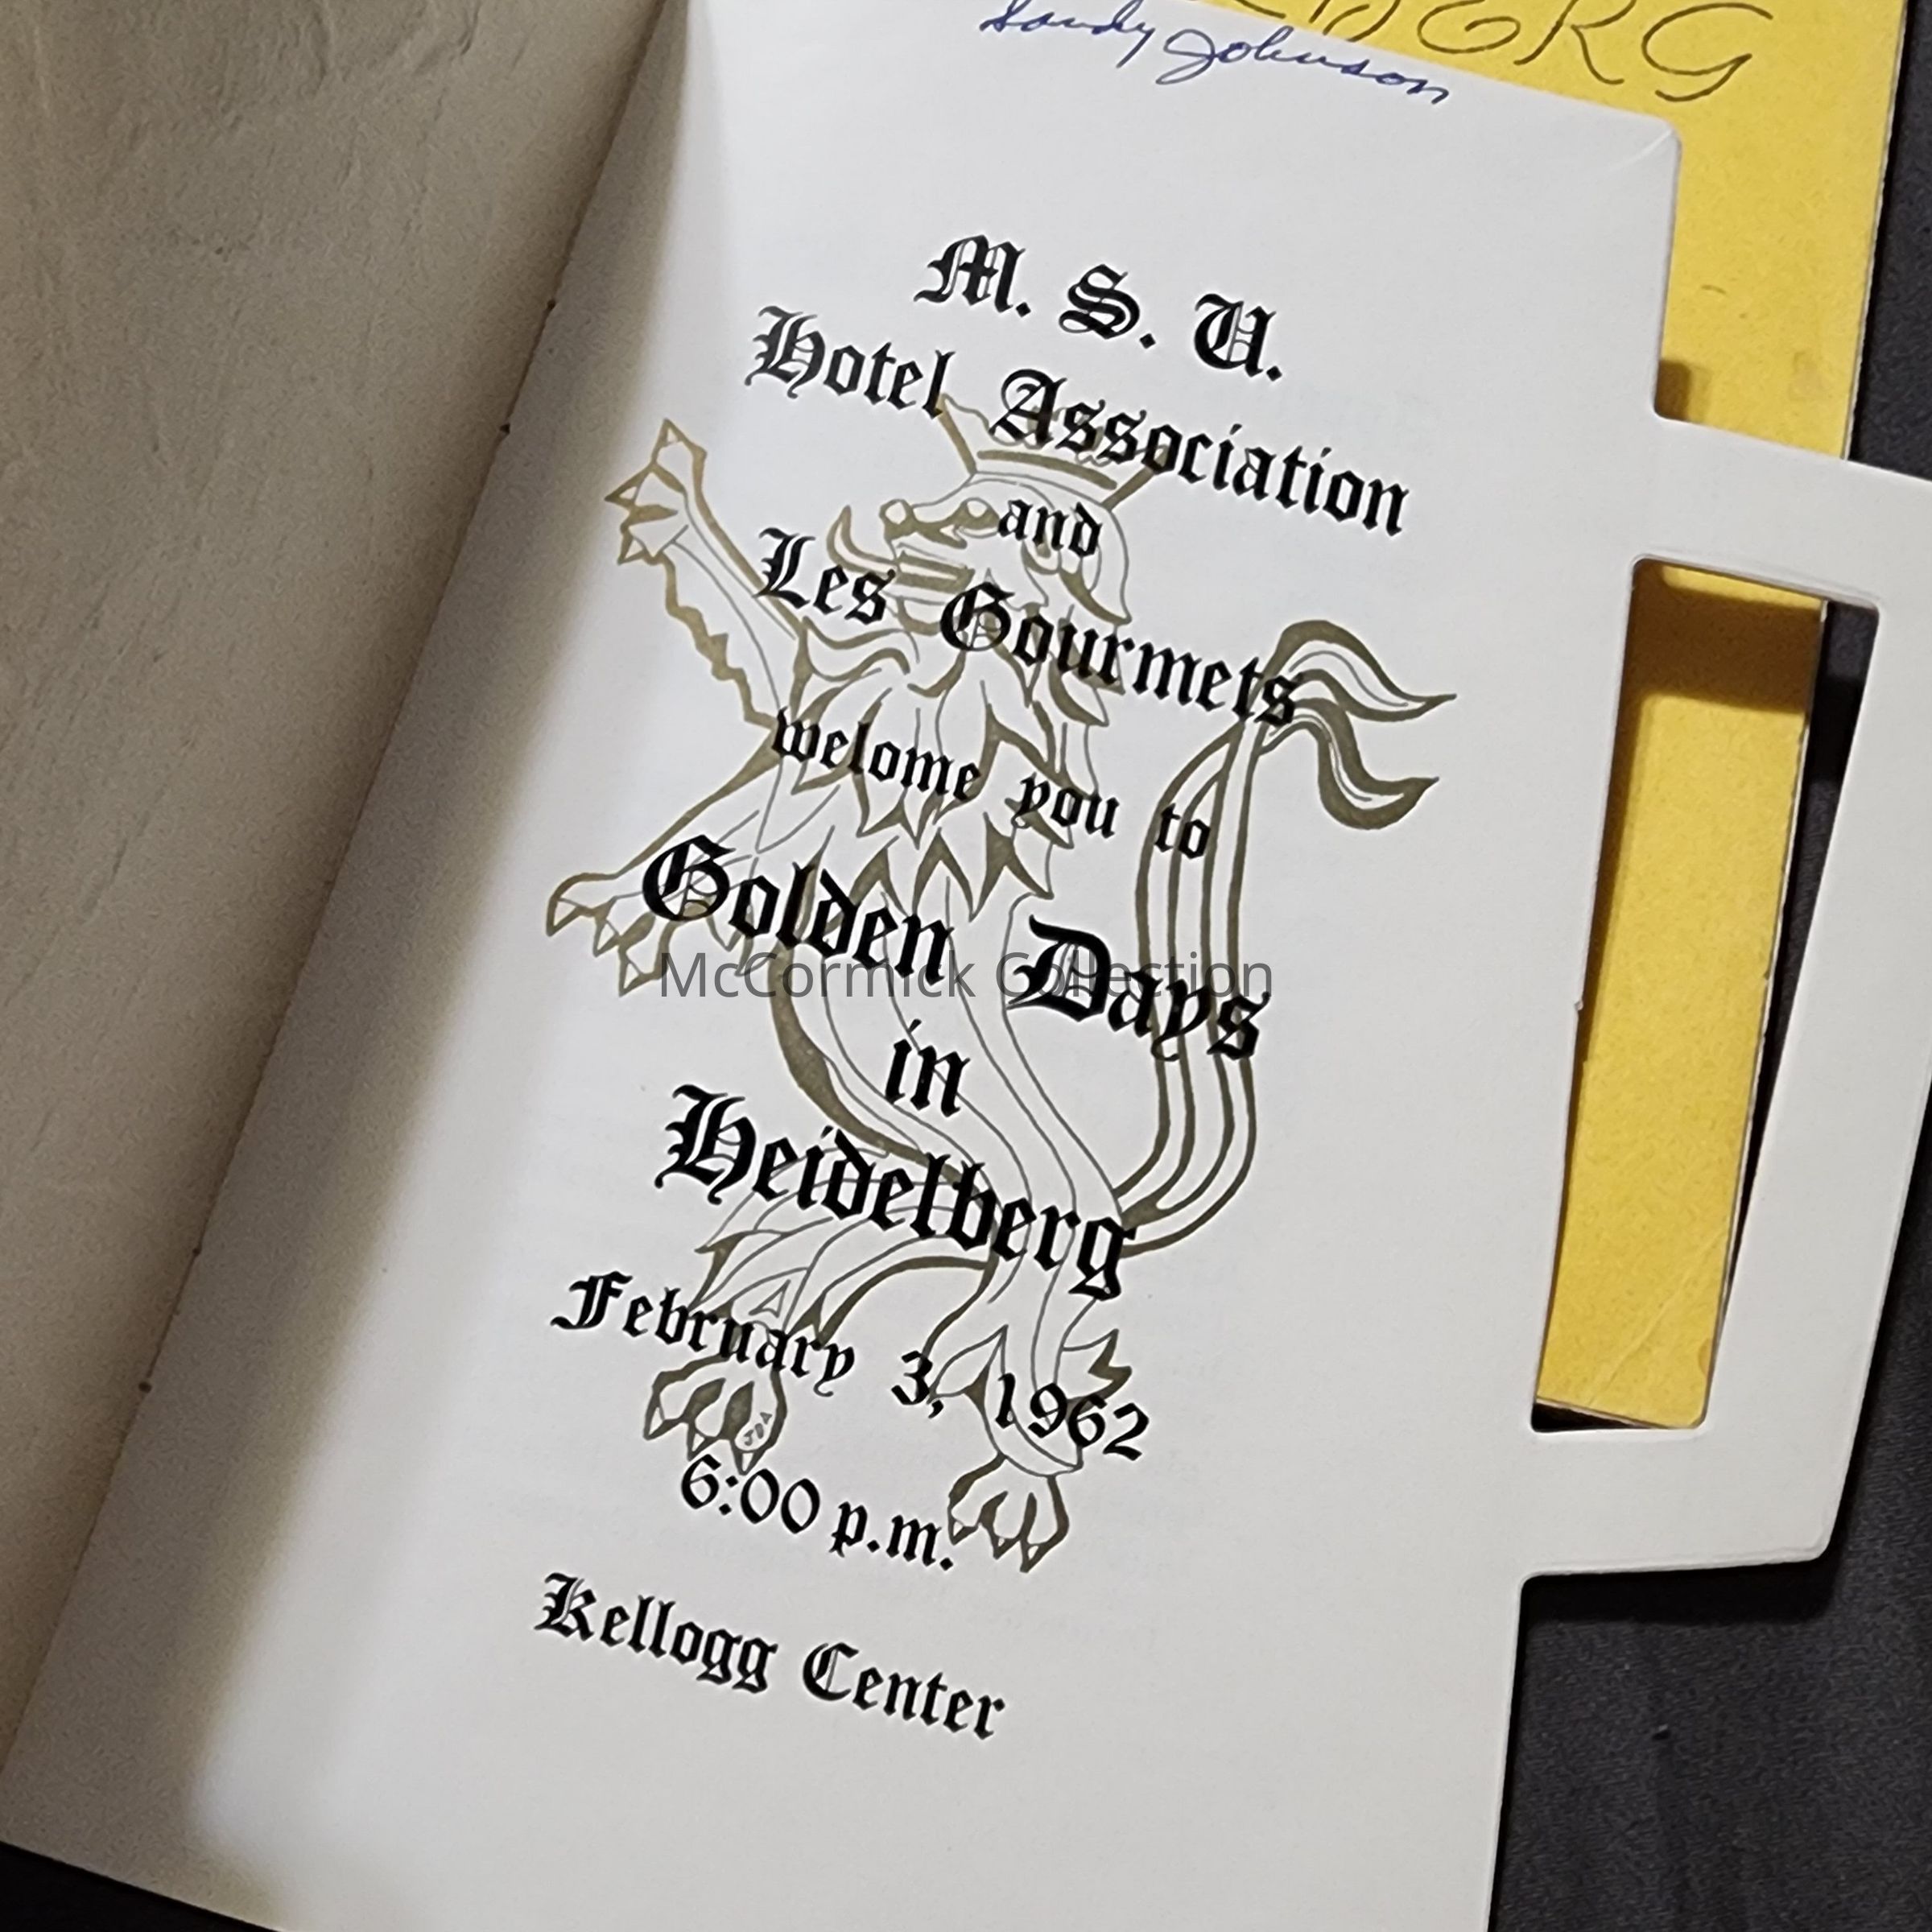 BERG
Sandy Johnson
M. S. U.
Hotel Association
and
Les Gourmets
welome you to
Golden Days
McCormick Collection
in
Heidelberg
February 3, 1962
JDA
6:00 p.m.
Kellogg Center